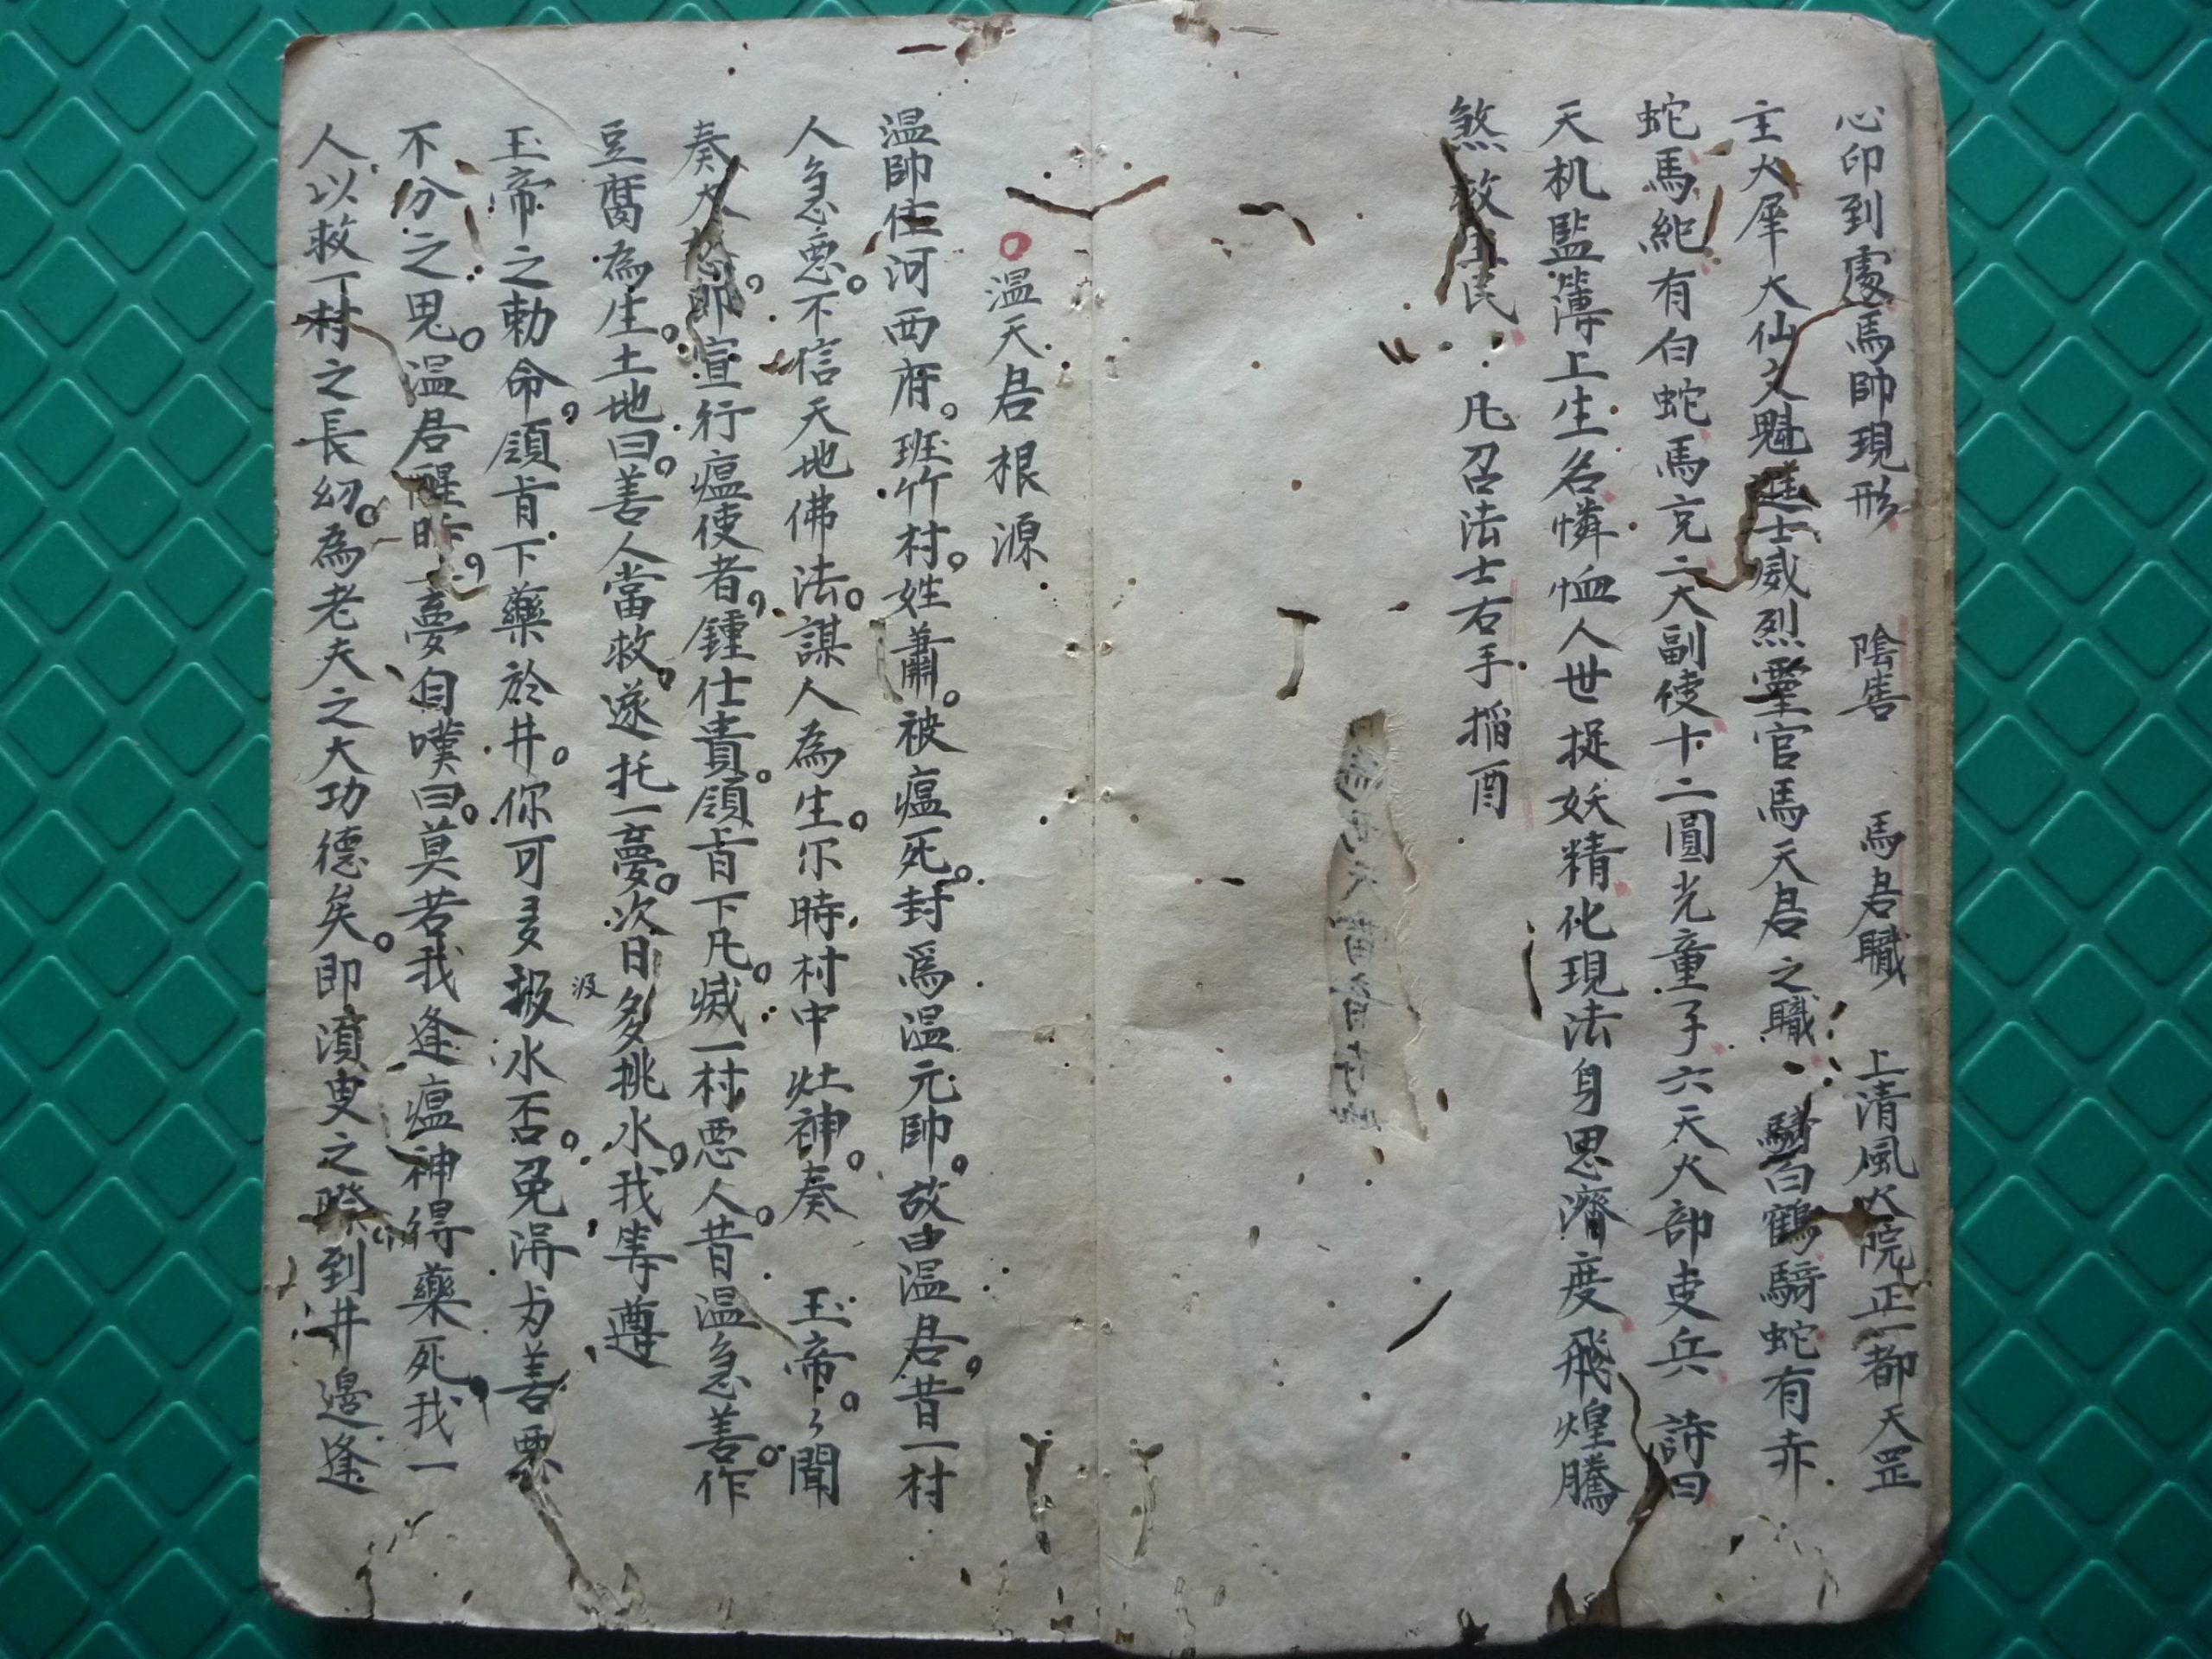 心印到處馬帥現形　陰雟　馬君職　上清風火院正一都天罡
主火犀大仙文魁 士威烈靈官馬天君之職　騎白鶴騎蛇有赤
蛇馬紀有白蛇馬充二大副使十二圓光童子六天大部吏兵　詩曰
天机監薄上生名憐恤人世捉妖精化現法身思濟度飛煌騰
煞救生民　凡召法士右手掐酉
温天君根源
温帥住河西府。班竹村。姓蕭。被瘟死。封爲温元帥。故曰温君。昔一村
人急惡。不信天地佛法。謀人為生。尔時村中灶神。奏　玉帝。々聞
奏大怒。即宣行瘟使者。鍾仕貴。領旨下凡。滅一村惡人。昔温急善。作
豆腐為生。土地曰。善人當救。遂托一夢。次日多挑水。我等遵
玉帝之勅命。領旨下藥於井。你可多扱汲水否。免淂為善惡
不分之鬼。温君醒 夢自嘆曰。莫若我逢瘟神得藥死。我一
人以救一村之長幼。為老夫之大功德矣。即湏叟之際。到井邊逢